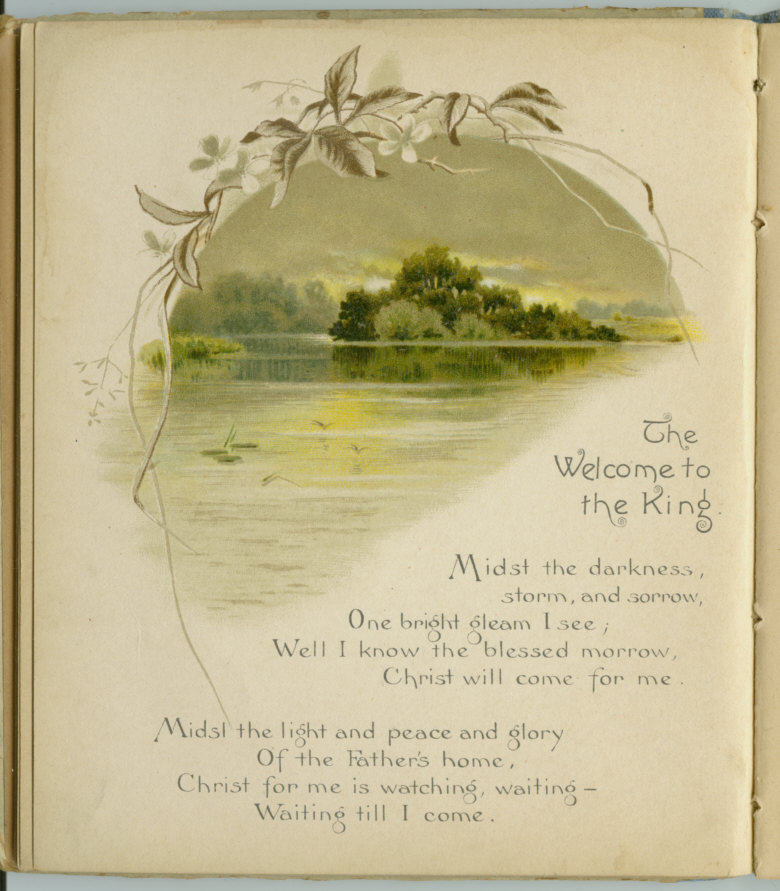 The
Welcome to
the King.
Midst the darkness,
storm, and sorrow,
One bright gleam I see;
Well I know the blessed morrow,
Christ will come for me.
Midst the light and peace and glory
Of the Father's home,
Christ for me is watching, waiting—
Waiting till I come.